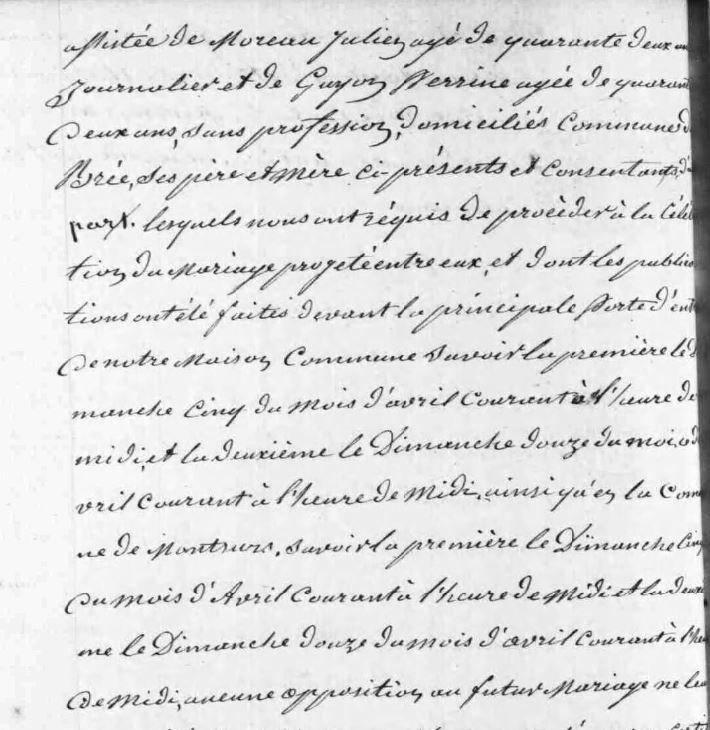 assistée de Moreau Julien agé de quarante deux an
Journalier et de Guyon Perrine agée de quarant
deux ans, sans profession, domiciliés Commune d
Brée, ses père et Mère ci-présents et Consentants, d'
part. lesquels nous ont réquis de procèder à la Célé
tion du Mariage projeté entre eux, et dont les publica
tions ont été faites devant la principale Porte d'ent
de notre Maison Commune Savoir la première le D
manche Cinq du mois d'avril Courant à l'heure de
midi, et la deuxième le Dimanche douze du mois, d
vril Courant à l'heure de Midi, ainsi qu'en la Com
ne de Montsurs, Savoir la première le Dimanche Cinq
du mois d'Avril Courant à l'heure de Midi et la deuxi
me le Dimanche douze du mois d'avril Courant à l'heu
de Midi, aucune opposition au futur Mariage ne